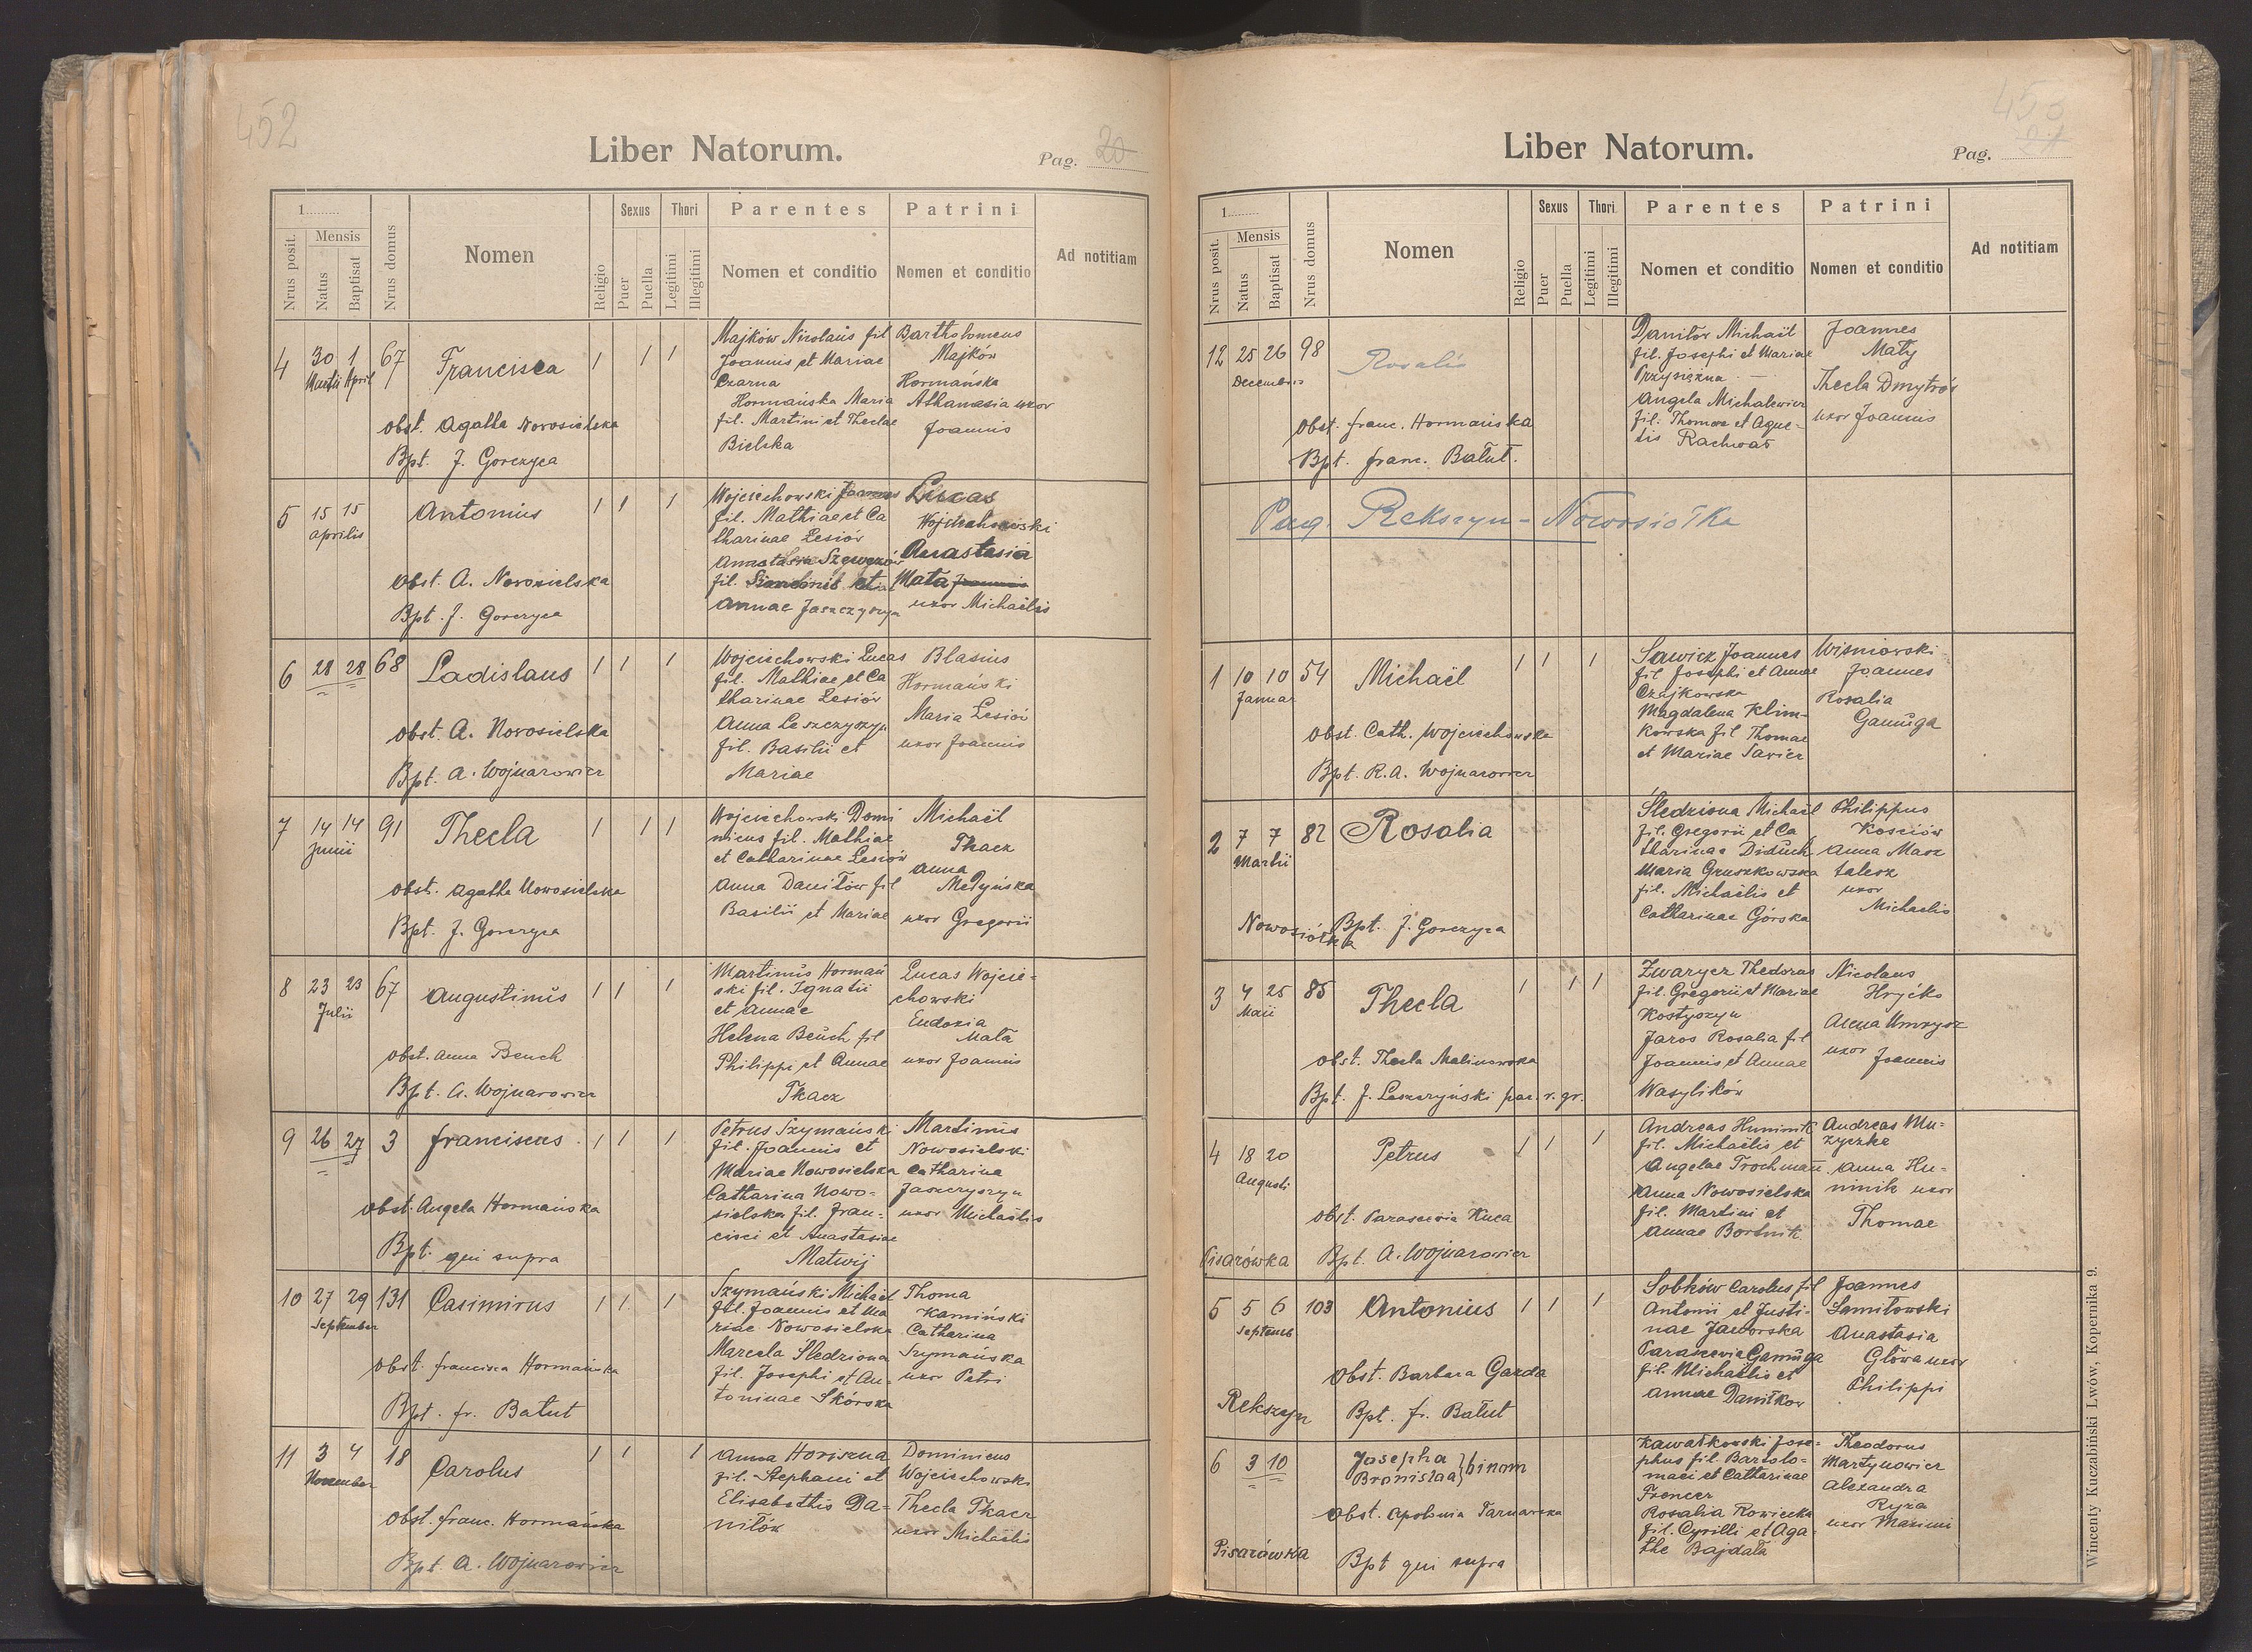 452
Liber Natorum.
Pag. 20
1.........
Nrus posit.
Mensis
Natus
Baptisat
Nrus domus
Nomen
Religio
Sexus
Puer
Puella
Thori
Legitimi
Illegitimi
Parentes
Nomen et conditio
Patrini
Nomen et conditio
Ad notitiam
4 30 1 67 Francisca 1 1 1
Martii April
obst. Agatha Novosielska
Bpt. J. Gorczyca
Majków Nicolaus fil
Joannis et Mariae
Czarna
Hormańska Maria
fil. Martini et Theclae
Bielska
Bartholomeus
Majków
Hormańska
Athanasia uxor
Joannis
5 15 15 Antonius 1 1 1
aprilis
obst. A. Novosielska
Bpt. J. Gorczyca
Wojciechowski Joannes
fil. Mathiae et Ca
tharinae Lesiów
Anastasia Szewczów
fil. Simeonis et
Annae Jaszczyszyn
Lucas
Wojciechowski
Anastasia
Mała Joannis
uxor Michaëlis
6 28 28 68 Ladislaus 1 1 1
obst. A. Novosielska
Bpt. A. Wojnarowicz
Wojciechowski Lucas
fil. Mathiae et Ca
tharinae Lesiów
Anna Leszczyszyn
fil. Basilii et
Mariae
Blasius
Hormański
Maria Lesiów
uxor Joannis
7 14 14 91 Thecla 1 1 1
Junii
obst. Agatha Nowosielska
Bpt. J. Gorczyca
Wojciechowski Domi
nicus fil. Mathiae
et Catharinae Lesiów
Anna Daniłów fil
Basilii et Mariae
Michaël
Tkacz
Anna
Medyńska
uxor Gregorii
8 23 23 67 Augustinus 1 1 1
Julii
obst. Anna Bench
Bpt. A. Wojnarowicz
Martinus Hormań
ski fil. Ignatii
et Annae
Helena Bench fil
Philippi et Annae
Tkacz
Lucas Wojcie-
chowski
Eudoxia
Mała
uxor Joannis
9 26 27 3 Franciscus 1 1 1
obst. Angela Hormańska
Bpt. qui supra
Petrus Szymański
fil. Joannis et
Mariae Nowosielska
Catharina Nowo-
sielska fil. Fran-
cisci et Anastasiae
Matwij
Martinus
Nowosielski
Catharina
Jaszczyszyn
uxor Michaëlis
10 27 29 131 Casimirus 1 1 1
September
obst. Francisca Hormańska
Bpt. fr. Batut
Szymański Michaël
fil. Joannis et Ma
riae Nowosielska
Marcela Śledziona
fil. Josephi et An-
toninae Skórska
Thoma
Kamiński
Catharina
Szymańska
uxor Petri
11 3 4 18 Carolus 1 1 1
November
obst. Franc. Hormańska
Bpt. A. Wojnarowicz
Anna Horiszna
fil. Stephani et
Elisabethis Da-
niłów
Dominicus
Wojciechowski
Thecla Tkacz
uxor Michaëlis
Liber Natorum.
Pag.
1.........
Nrus posit.
Mensis
Natus
Baptisat
Nrus domus
Nomen
Religio
Sexus
Puer
Puella
Thori
Legitimi
Illegitimi
Parentes
Nomen et conditio
Patrini
Nomen et conditio
Ad notitiam
12 25 26 98 Rosalia
Decembris
Obst. Franc. Hormańska
Bpt. Franc. Batut.
Daniłów Michaël
fil. Josephi et Mariae
Przysiężna
Angela Michalewicz
fil. Thomae et Agne-
tis Rachwał
Joannes
Mały
Thecla Dmytrów
uxor Joannis
Pag. Rekszyn - Nowosiołka
1 10 10 54 Michaël 1 1 1
Januar
obst. Cath. Wojciechowska
Bpt. R. A. Wojnarowicz
Sawicz Joannes
fil Josephi et Annae
Czajkowska
Magdalena Klim-
kowska fil Thomae
et Mariae Sawicz
Wisniowski
Joannes
Rosalia
Gamuga
2 7 7 82 Rosalia
Martii
Nowosiółka Bpt. J. Gorczyca
Śledziona Michaël
fil. Gregorii et Ca
tharinae Diduch
Maria Gruszkowska
fil. Michaëlis et
Catharinae Górska
Philippus
Kościów
Anna Masz
talerz
uxor
Michaelis
3 4 25 85 Thecla 1 1 1
Maii
obst. Thecla Malinowska
Bpt. J. Leszczyński par. r. gr.
Zwarycz Thedorus
fil. Gregorii et Mariae
Kostyszyn
Jaros Rosalia fil
Joannis et Annae
Wasylików
Nicolaus
Hryćko
Anna
uxor Joannis
4 18 20 Petrus 1 1 1
Augusti
obst. Parascevia Kuca
Pisarówka Bpt. A. Wojnarowicz
Andreas Huminik
fil. Michaëlis et
Angelae Trochman
Anna Nowosielska
fil. Martini et
Annae Bortnik
Andreas Mu-
zyczka
Anna Hu-
minik uxor
Thomae
5 5 6 103 Antonius 1 1 1
Septemb
Obst. Barbara Gazda
Rekszyn Bpt. fr. Batut
Sobków Carolus fil
Antonii et Justi-
nae Jaworska
Parascevia Gamuga
fil. Michaëlis et
Annae Daniłków
Joannes
Samitowski
Anastasia
Głowa uxor
Philippi
6 3 10 Josepha
Bronisłaa } binom
Obst. Apolonia Tarnawska
Pisarówka Bpt qui supra
Kawałkowski Jose-
phus fil. Bartolo-
maei et Catharinae
Frencer
Rosalia Rowicka
fil. Cyrilli et Aga-
the Bajdała
Theodorus
Martynowicz
Alexandra
Ryza
uxor Maximi
Wincenty Kuczabiński Lwów, Kopernika 9.